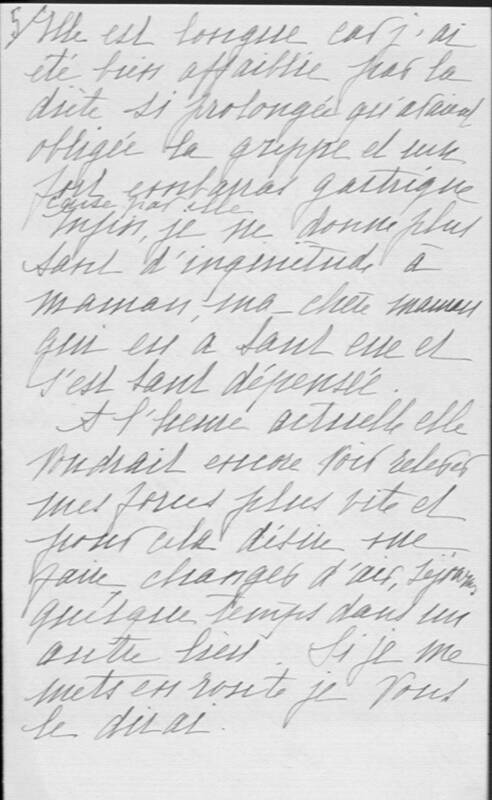 5) Elle est longue car j'ai
été bien affaiblie par la
diète si prolongée qu'avait
obligée la grippe et un
fort embarras gastrique
causé par elle
Enfin, je ne donne plus
tant d'inquiétude à
maman, ma chère maman
qui en a tant eue et
s'est tant dépensée.
A l'heure actuelle elle
voudrait encore voir relever
mes forces plus vite et
pour cela désire me
faire changer d'air, séjourner
quelque temps dans un
autre lieu. Si je me
mets en route je vous
le dirai.